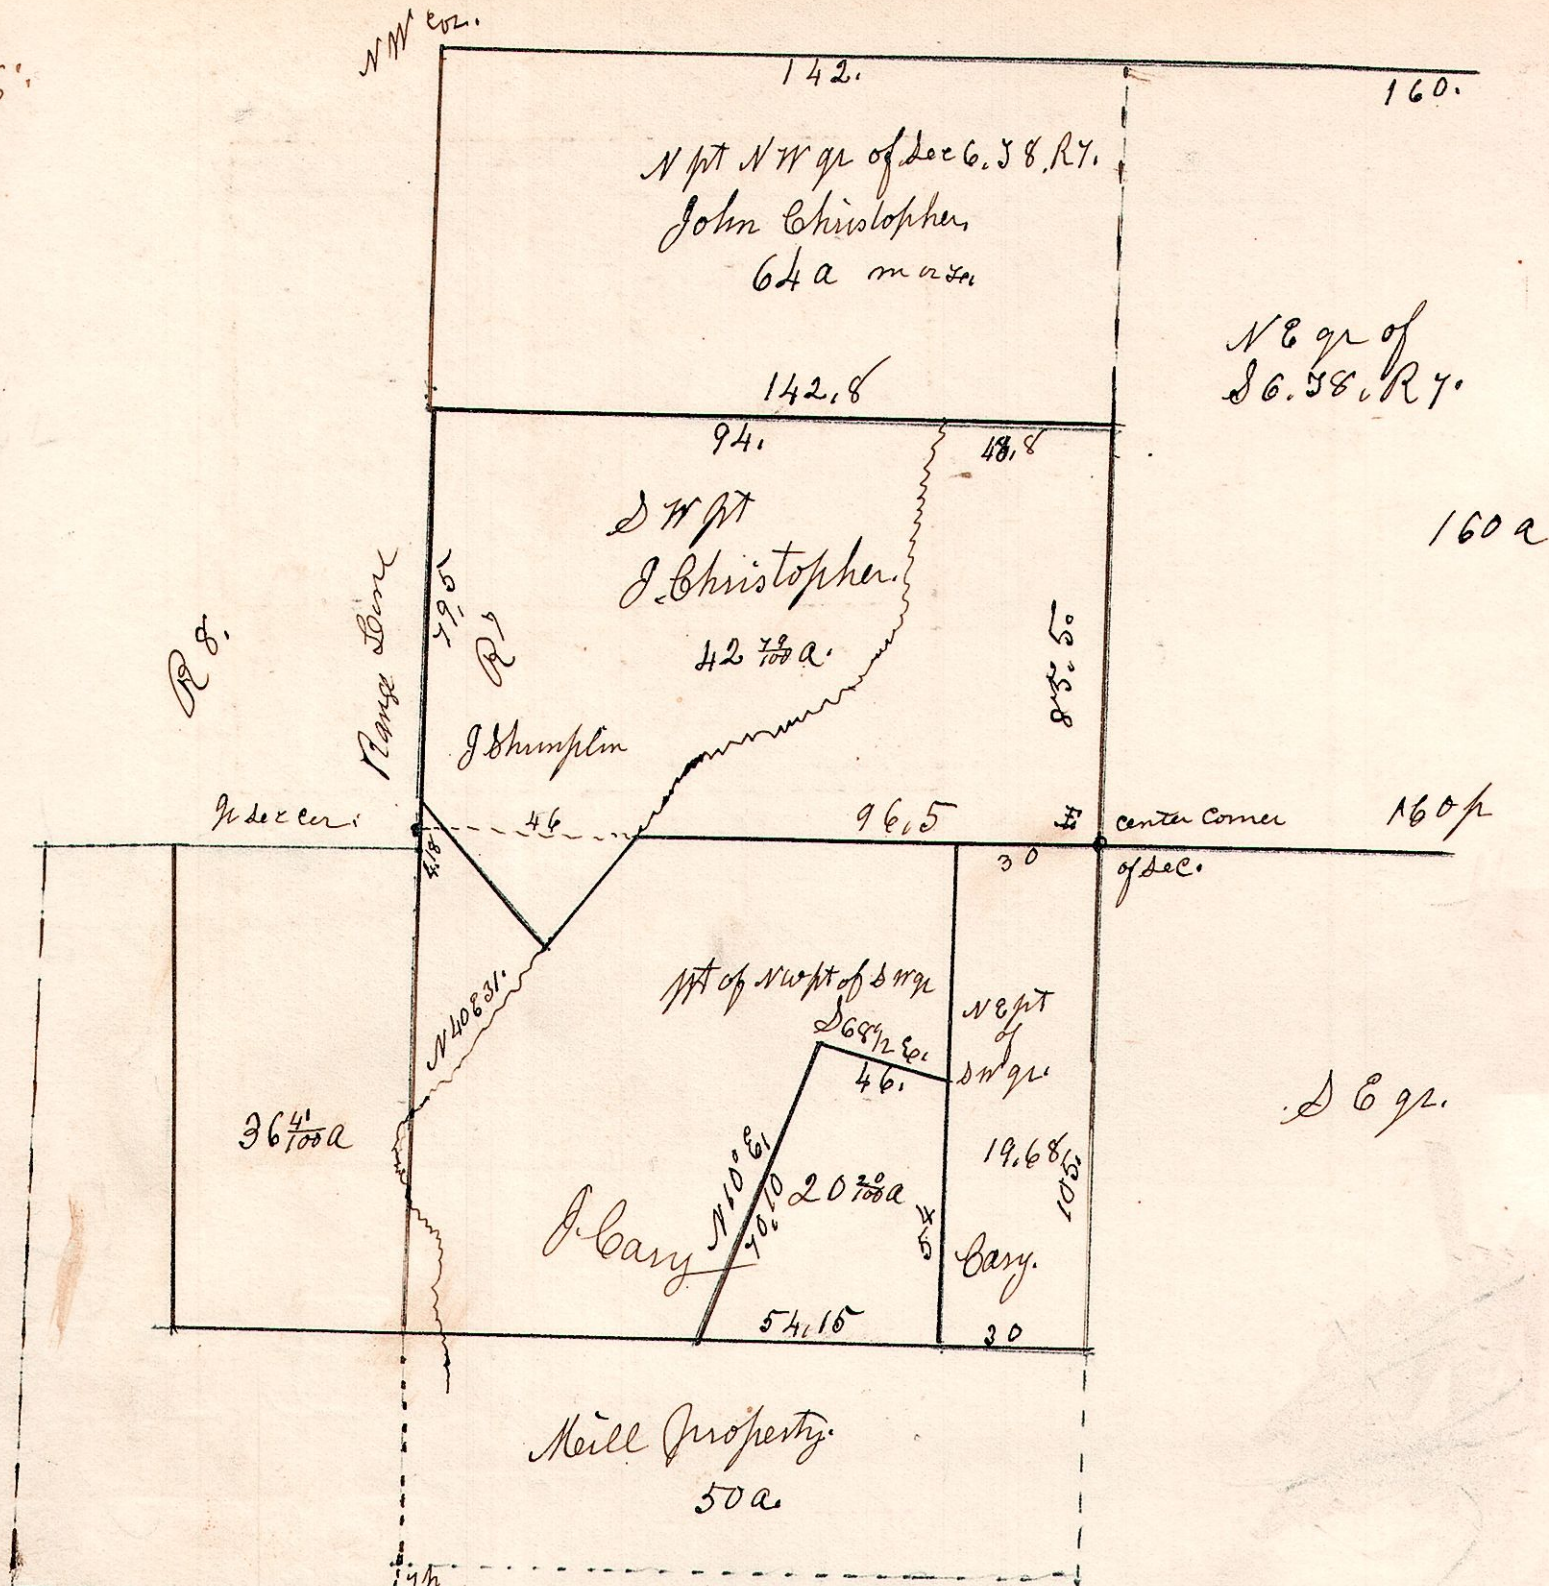 NW cor.
142.
160.
N pt NW qr of Sec 6. T8. R7.
John Christopher.
64 a m or
N E qr of
S 6. T8. R7.
142.8
94.
48.8
S W pt
J. Christopher.
42 79/100 a.
160 a
Range Line
79.5
R 7
R 8.
85.5.
J Shumplin
qr sec cor.
46
96.5
center corner
160 p
4.8
30
of sec.
N40E31.
pt of NW pt of S W qr
S68 1/2 E.
46.
N E pt
of
S W qr.
36 41/100 a
S E qr.
N 10° E.
70.10
20 20/100 a
19.68
105.
54
J. Cary
Cary.
54.15
30
Mill Property.
50 a.